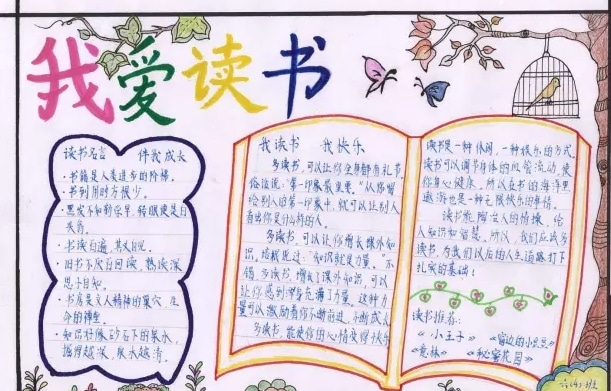 我爱读书
读书名言 伴我成长
·书籍是人类进步的阶梯。
·书到用时方恨少。
·黑发不知勤学早，转眼便是白
头翁。
·书读百遍，其义自见。
·旧书不厌百回读，熟读深
思子自知。
·书房是文人精神的巢穴，生
命的禅堂。
·知识好像砂石下的泉水，
掘得越深，泉水越清。
我读书 我快乐
多读书，可以让你全身都有礼节。
俗话说："第一印象最重要。"从你留
给别人的第一印象中，就可以让别人
看出你是什么样的人。
多读书，可以让你增长课外知
识。培根说过："知识就是力量。"不
错，多读书，增长了课外知识，可以
让你感到浑身充满了力量。这种力
量可以激励着你不断前进，不断成长。
多读书，能使你的心情变得快乐
读书是一种休闲，一种娱乐的方式。
读书可以调节身体的血管流动，使
你身心健康。所以在书的海洋里
遨游也是一种无限快乐的事情。
读书能陶冶人的情操，给
人知识和智慧。所以，我们应该多
读书，为我们以后的人生道路打下
扎实的基础！
读书推荐:
《小王子》 《窗边的小豆豆》
《意林》 《秘密花园》